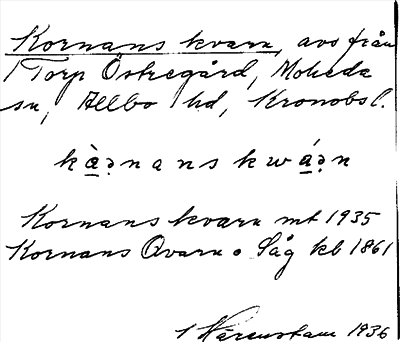 Kornans kvarn, avs från
1 Torp Östregård, Moheda
sn, Allbo hd, Kronobsl.
kàɂnanskwáɂn
Kornans kvarn mt 1935
Kornans Qvarn o Såg kb 1861
1936